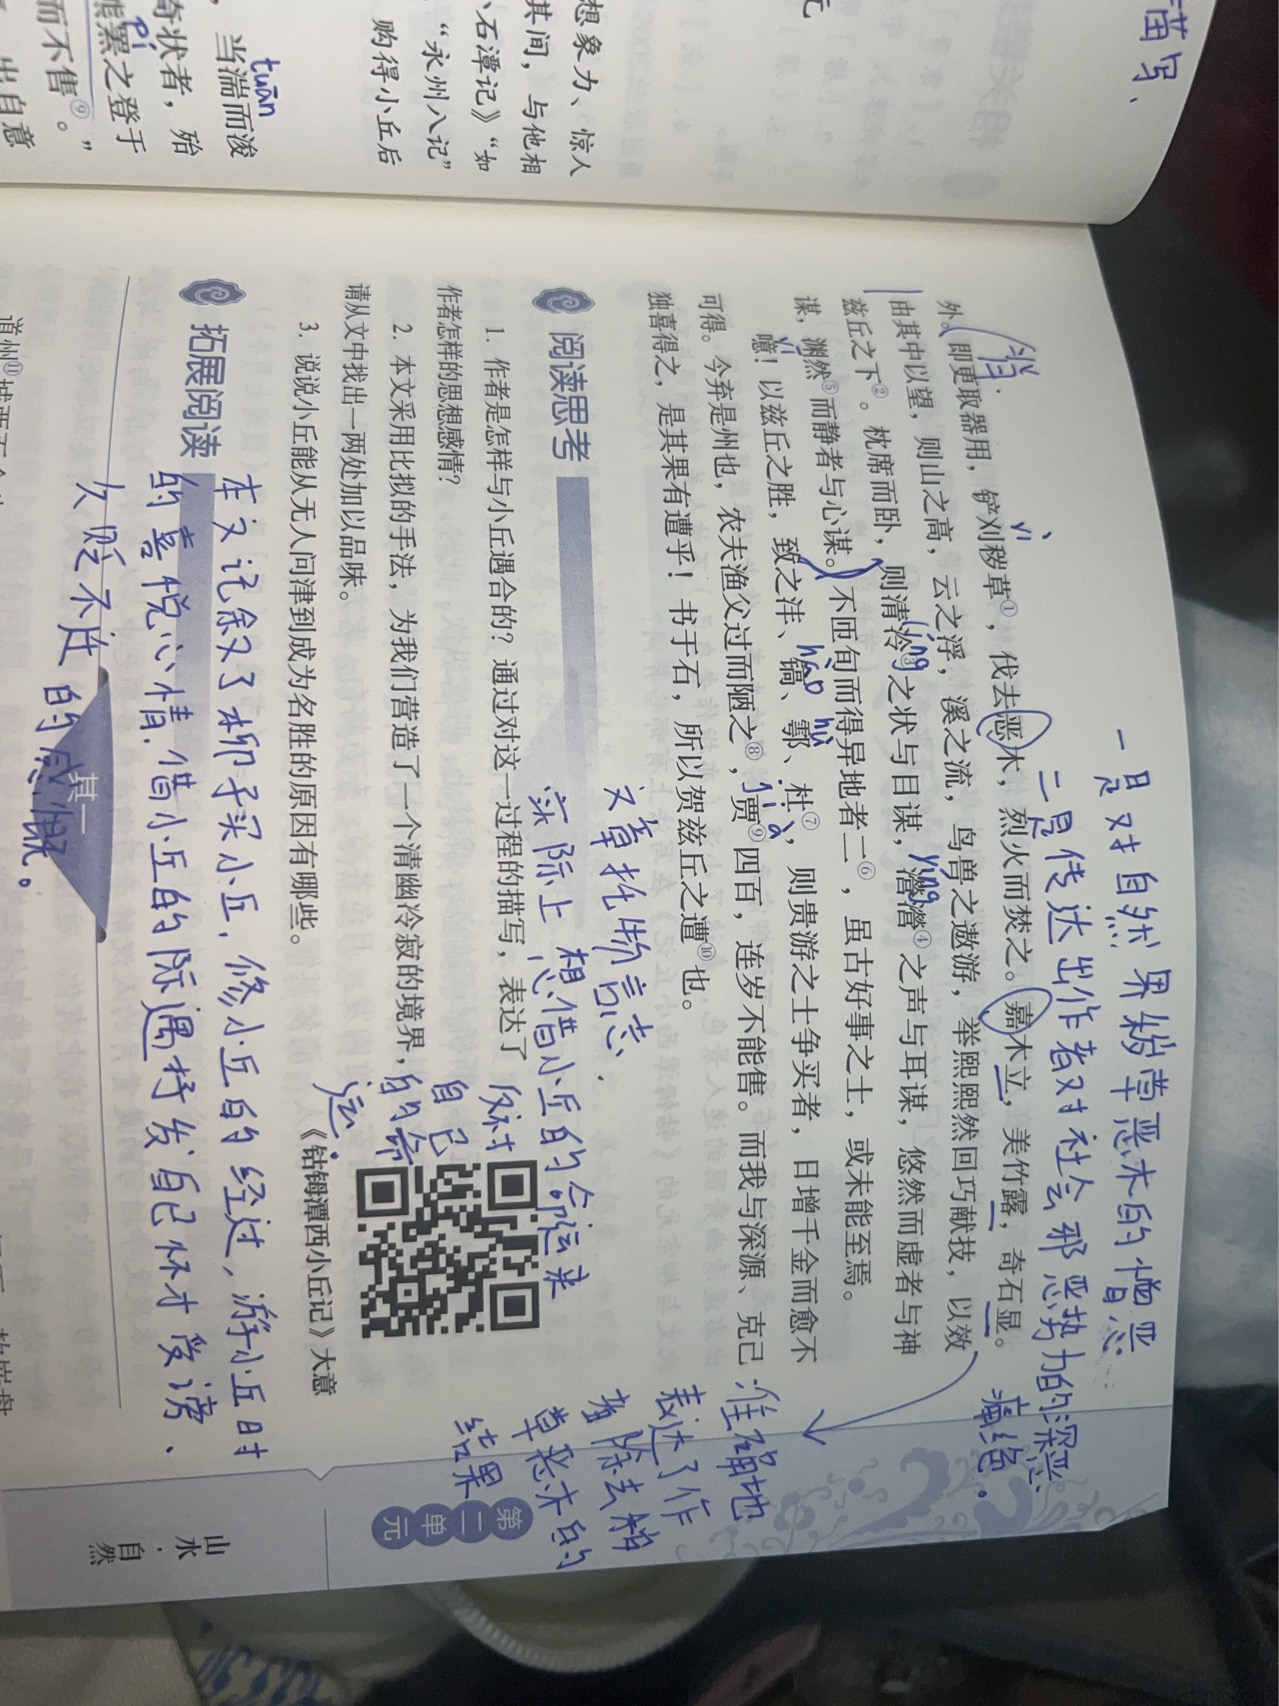 苗写、
元
想象力、惊人
其间，与他相
石潭记》“如
“永州八记”
购得小丘后
tuān
当湍而浚
奇状者，殆
pí
熊罴之登于
而不售⑨。”
出自意
一是对自然界秽草恶木的憎恶
二是传达出作者对社会邪恶势力的深恶
痛绝。
外。即更取器用，铲刈秽草①，伐去恶木，烈火而焚之。嘉木立，美竹露，奇石显。
yì
由其中以望，则山之高，云之浮，溪之流，鸟兽之遨游，举熙熙然回巧献技，以效
兹丘之下②。枕席而卧，则清泠③之状与目谋，瀯瀯④之声与耳谋，悠然而虚者与神
líng
yíng
谋，渊然⑤而静者与心谋。不匝旬而得异地者二⑥，虽古好事之士，或未能至焉。
yī
噫！以兹丘之胜，致之沣、镐、鄠、杜⑦，则贵游之士争买者，日增千金而愈不
hào hù
可得。今弃是州也，农夫渔父过而陋之⑧，贾⑨四百，连岁不能售。而我与深源、克己
jià
独喜得之，是其果有遭乎！书于石，所以贺兹丘之遭⑩也。
准确地
表达了作
者除去秽
草恶木的
结果
文章托物言志，
实际上想借小丘的命运来
反衬
自己
的命
运。
阅读思考
1. 作者是怎样与小丘遇合的？通过对这一过程的描写，表达了
作者怎样的思想感情？
2. 本文采用比拟的手法，为我们营造了一个清幽冷寂的境界，
请从文中找出一两处加以品味。
3. 说说小丘能从无人问津到成为名胜的原因有哪些。
《钴鉧潭西小丘记》大意
拓展阅读
本文记叙了柳子买小丘，修小丘的经过，游小丘时
的喜悦心情，借小丘的际遇抒发自己怀才受谤、
久贬不迁的感慨。
其一
第二单元
山水·自然